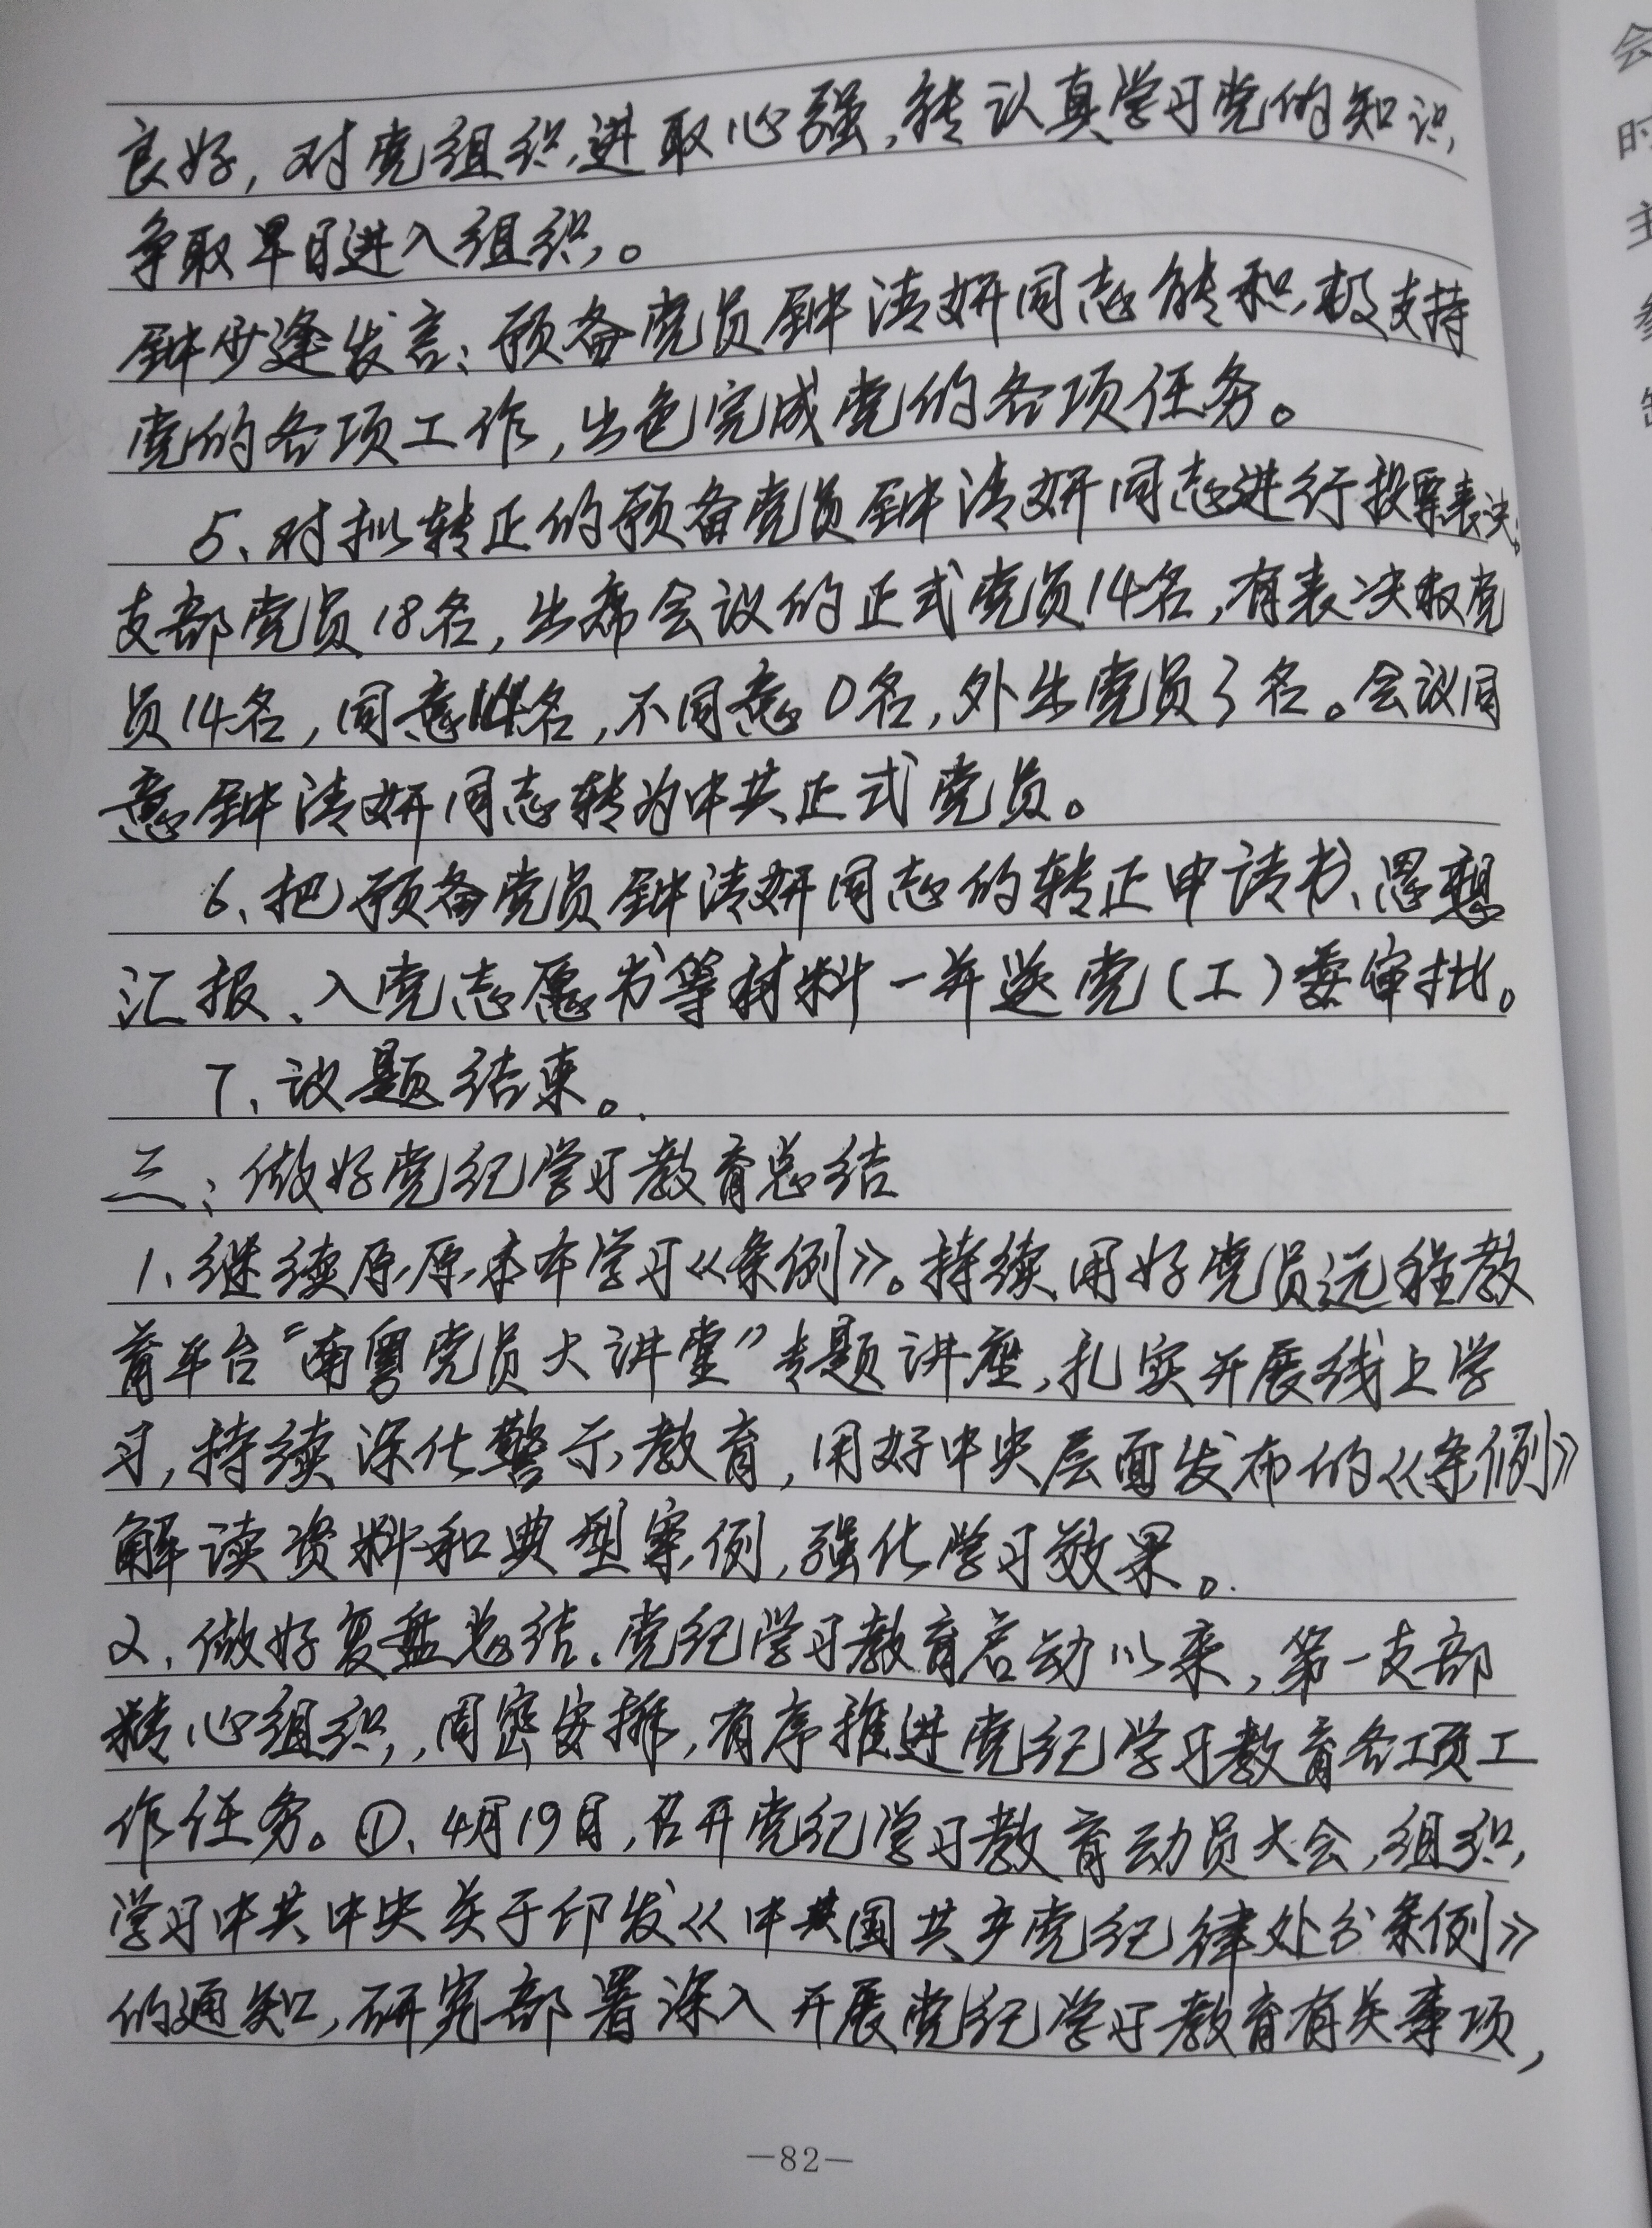 良好,对党组织进取心强,能认真学习党的知识,
争取早日进入组织。
钟少逢发言:预备党员钟清妍同志能积极支持
党的各项工作,出色完成党的各项任务。
5、对拟转正的预备党员钟清妍同志进行投票表决。
支部党员18名,出席会议的正式党员14名,有表决权党
员14名,同意14名,不同意0名,外出党员3名。会议同
意钟清妍同志转为中共正式党员。
6、把预备党员钟清妍同志的转正申请书、思想
汇报、入党志愿书等材料一并送党(工)委审批。
7、议题结束。
三、做好党纪学习教育总结
1、继续原原本本学习《条例》。持续用好党员远程教
育平台“南粤党员大讲堂”专题讲座,扎实开展线上学
习,持续深化警示教育,用好中央层面发布的《条例》
解读资料和典型案例,强化学习效果。
2、做好复盘总结。党纪学习教育启动以来,第一支部
精心组织,周密安排,有序推进党纪学习教育各项工
作任务。①、4月19日,召开党纪学习教育动员大会,组织
学习中共中央关于印发《中国共产党纪律处分条例》
的通知,研究部署深入开展党纪学习教育有关事项,
—82—
会
时
主